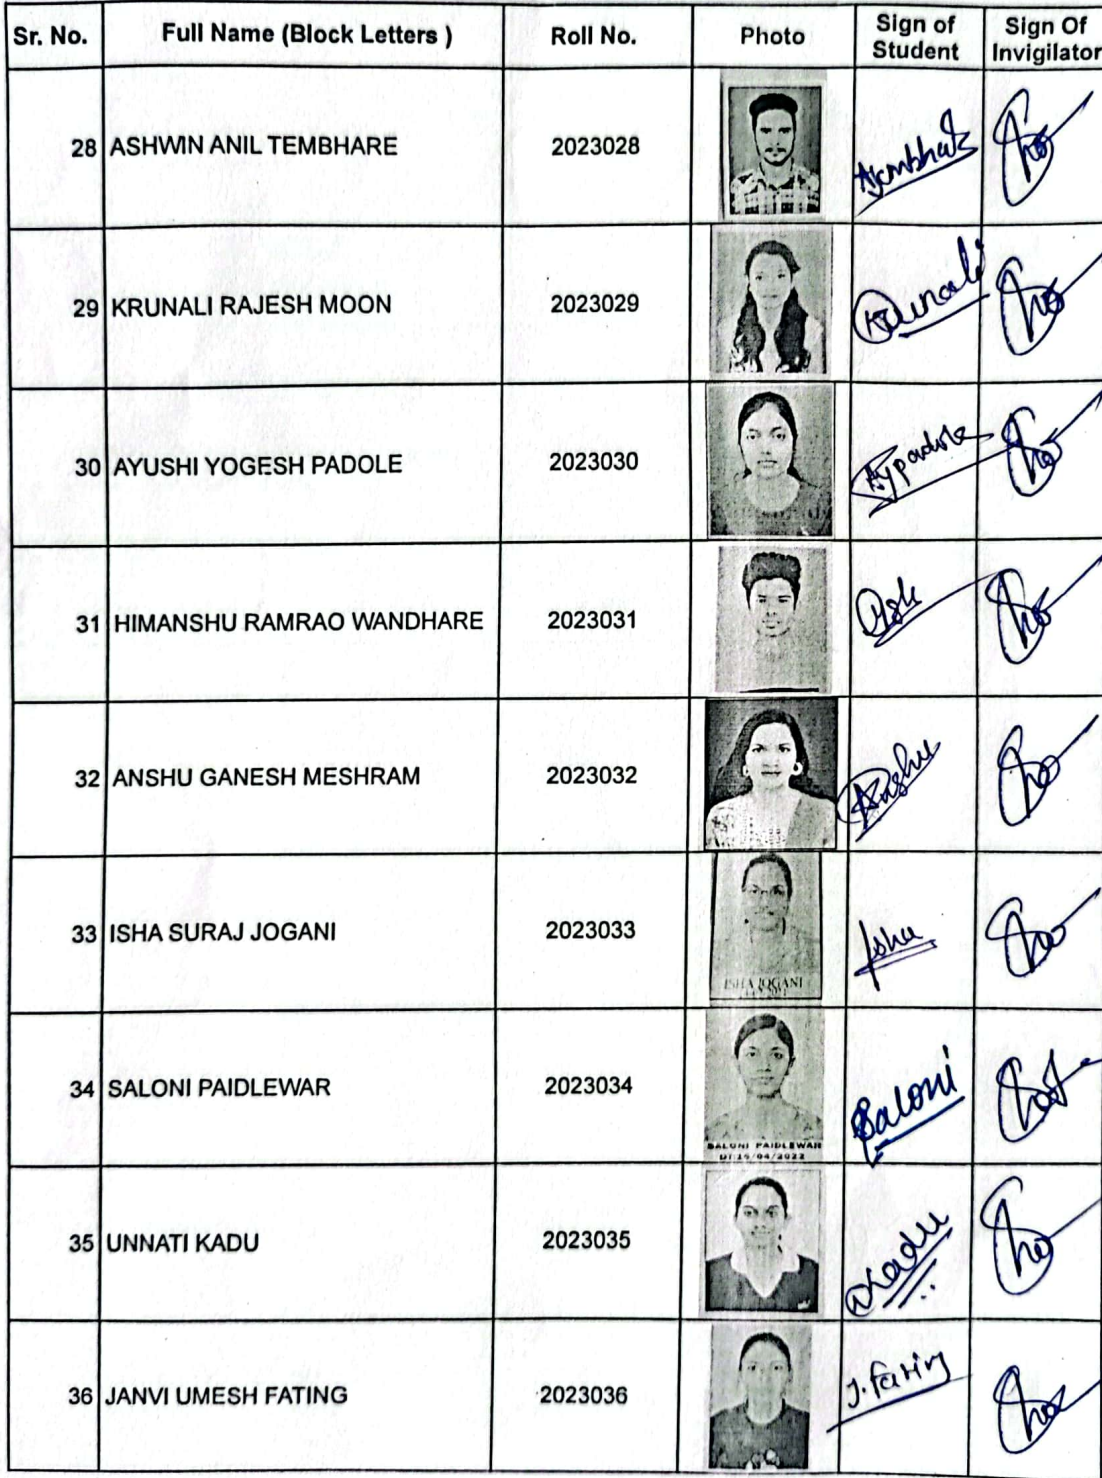 Sr. No. Full Name (Block Letters ) Roll No. Photo Sign of Student Sign Of Invigilator
28 ASHWIN ANIL TEMBHARE 2023028
29 KRUNALI RAJESH MOON 2023029 Krunali
30 AYUSHI YOGESH PADOLE 2023030 Aypadole
31 HIMANSHU RAMRAO WANDHARE 2023031
32 ANSHU GANESH MESHRAM 2023032
33 ISHA SURAJ JOGANI 2023033 Isha
ISHA JOGANI
34 SALONI PAIDLEWAR 2023034 Saloni
SALONI PAIDLEWAR
35 UNNATI KADU 2023035
36 JANVI UMESH FATING 2023036 J. Fating